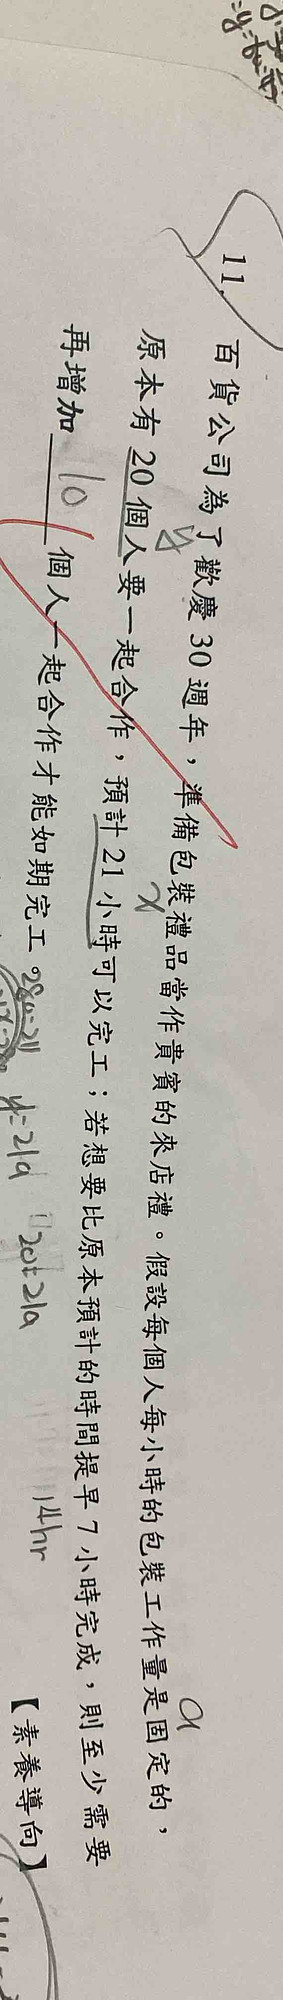 11. 百貨公司為了歡慶30週年，準備包裝禮品當作貴賓的來店禮。假設每個人每小時的包裝工作量是固定的，
原本有20個人要一起合作，預計21小時可以完工；若想要比原本預計的時間提早7小時完成，則至少需要
再增加 10 個人一起合作才能如期完工。
【素養導向】
y
x
a
y=21a
20=21a
14hr